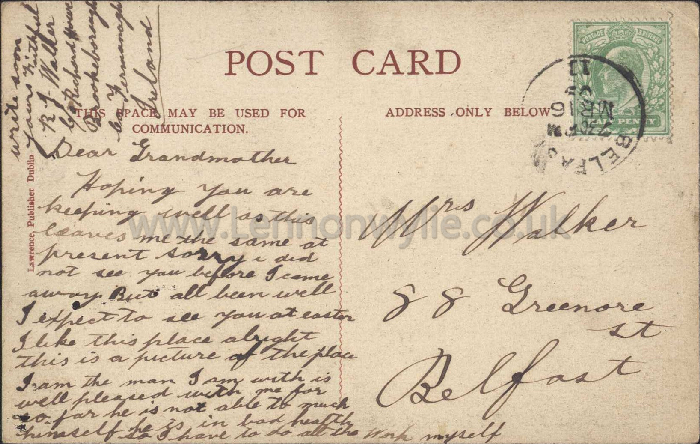 POST CARD
THIS SPACE MAY BE USED FOR
COMMUNICATION.
ADDRESS ONLY BELOW
Lawrence, Publisher Dublin
Dear Grandmother
Hoping you are
keeping well as this
leaves me the same at
present sorry i did
not see you before I came
away But all been well
I expect to see you at easter
I like this place alright
this is a picture of the place
I am the man I am with is
well pleased with me for
so far he is not able to much
himself he is in bad health
so I have to do all the work myself
write soon
yours faithful
R J Walker
Brookeborough
Co Fermanagh
Ireland
Mrs Walker
88 Greenore
st
Belfast
BELFAST
MR 16
HALF PENNY
www.Lennonwylie.co.uk